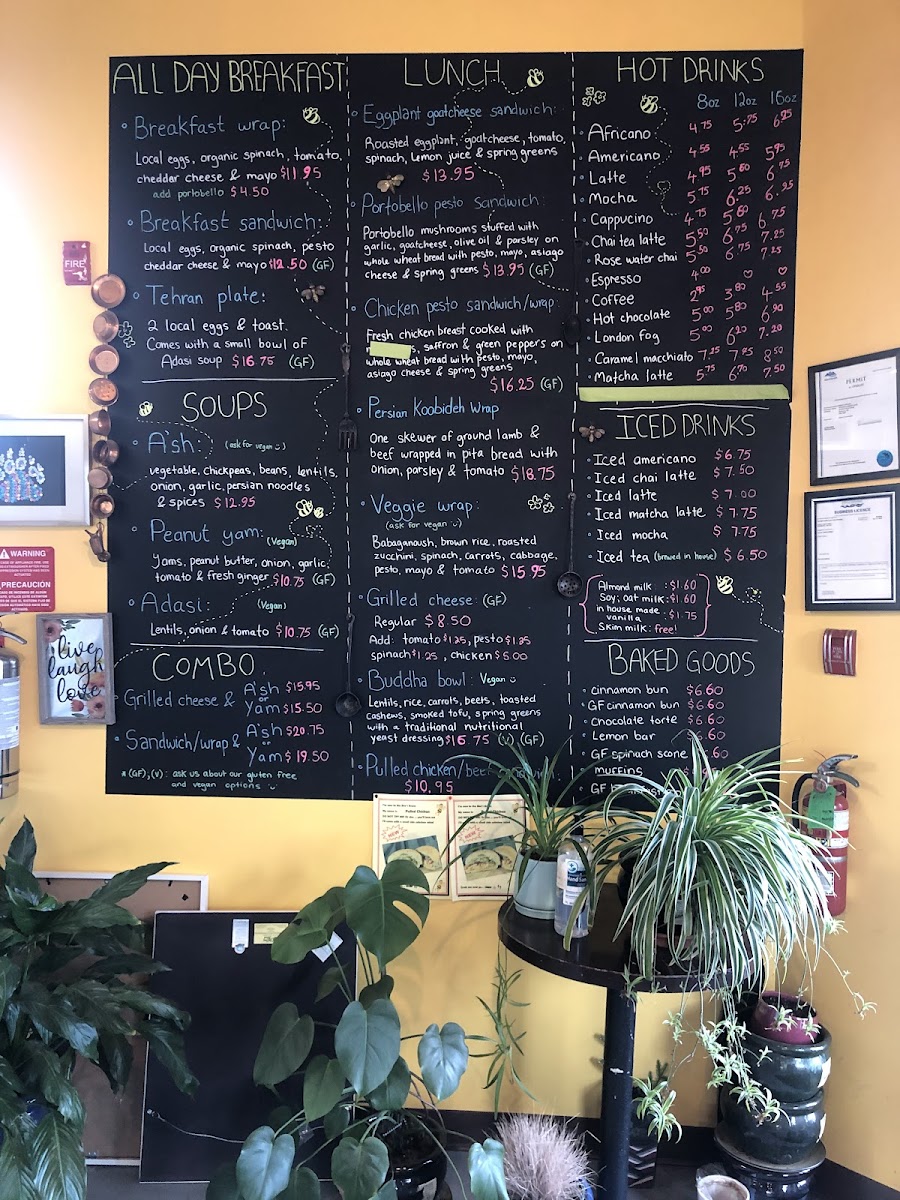 ALL DAY BREAKFAST
Breakfast wrap:
Local eggs, organic spinach, tomato,
cheddar cheese & mayo $11.95
add portobello $4.50
Breakfast sandwich:
Local eggs, organic spinach, pesto
cheddar cheese & mayo $12.50 (GF)
Tehran plate:
2 local eggs & toast.
Comes with a small bowl of
Adasi soup $16.75 (GF)
SOUPS
A'sh: (ask for vegan :)
vegetable, chickpeas, beans, lentils,
onion, garlic, persian noodles
& spices $12.95
Peanut yam: (Vegan)
Yams, peanut butter, onion, garlic,
tomato & fresh ginger $10.75 (GF)
Adasi: (Vegan)
Lentils, onion & tomato $10.75 (GF)
COMBO
Grilled cheese & A'sh $15.95
or
Yam $15.50
Sandwich/wrap & A'sh $20.75
or
Yam $19.50
*(GF);(V): ask us about our gluten free
and vegan options
LUNCH
Eggplant goatcheese sandwich:
Roasted eggplant, goatcheese, tomato,
spinach, lemon juice & spring greens
$13.95
Portobello pesto Sandwich:
Portobello mushrooms stuffed with
garlic, goatcheese, olive oil & parsley on
whole wheat bread with pesto, mayo, asiago
cheese & spring greens $13.95 (GF)
Chicken pesto sandwich/wrap:
Fresh chicken breast cooked with
s, saffron & green peppers on
whole wheat bread with pesto, mayo,
asiago cheese & spring greens
$16.25 (GF)
Persian Koobideh Wrap
One skewer of ground lamb &
beef wrapped in pita bread with
onion, parsley & tomato $18.75
Veggie wrap:
(ask for vegan :)
Babaganoush, brown rice, roasted
zucchini, spinach, carrots, cabbage,
pesto, mayo & tomato $15.95
Grilled cheese: (GF)
Regular $8.50
Add: tomato $1.25, pesto $1.25
spinach $1.25, chicken $5.00
Buddha bowl: Vegan
Lentils, rice, carrots, beets, toasted
cashews, smoked tofu, spring greens
with a traditional nutritional
yeast dressing $16.75 (V) (GF)
Pulled chicken/beef sandwich:
$10.95
HOT DRINKS
8oz 12oz 16oz
Africano: 4.75 5.75 6.25
Americano 4.55 4.55 5.95
Latte 4.95 5.60 6.75
Mocha 5.75 6.25 6.95
Cappucino 4.75 5.60 6.75
Chai tea latte 5.50 6.75 7.25
Rose water chai 5.50 6.75 7.25
Espresso 4.00
Coffee 2.95 3.80 4.55
Hot chocolate 5.00 5.80 6.90
London fog 5.00 6.20 7.20
Caramel macchiato 7.25 7.95 8.50
Matcha latte 5.75 6.70 7.50
ICED DRINKS
Iced americano $6.75
Iced chai latte $7.50
Iced latte $7.00
Iced matcha latte $7.75
Iced mocha $7.75
Iced tea (brewed in house) $6.50
Almond milk: $1.60
Soy; oat milk: $1.60
in house made
vanilla : $1.75
Skim milk: free!
BAKED GOODS
cinnamon bun $6.60
GF cinnamon bun $6.60
Chocolate torte $6.60
Lemon bar $6.60
GF spinach scone .60
muffins
FIRE
WARNING
PRECAUCIÓN
live
laugh
love
PERMIT
BUSINESS LICENCE